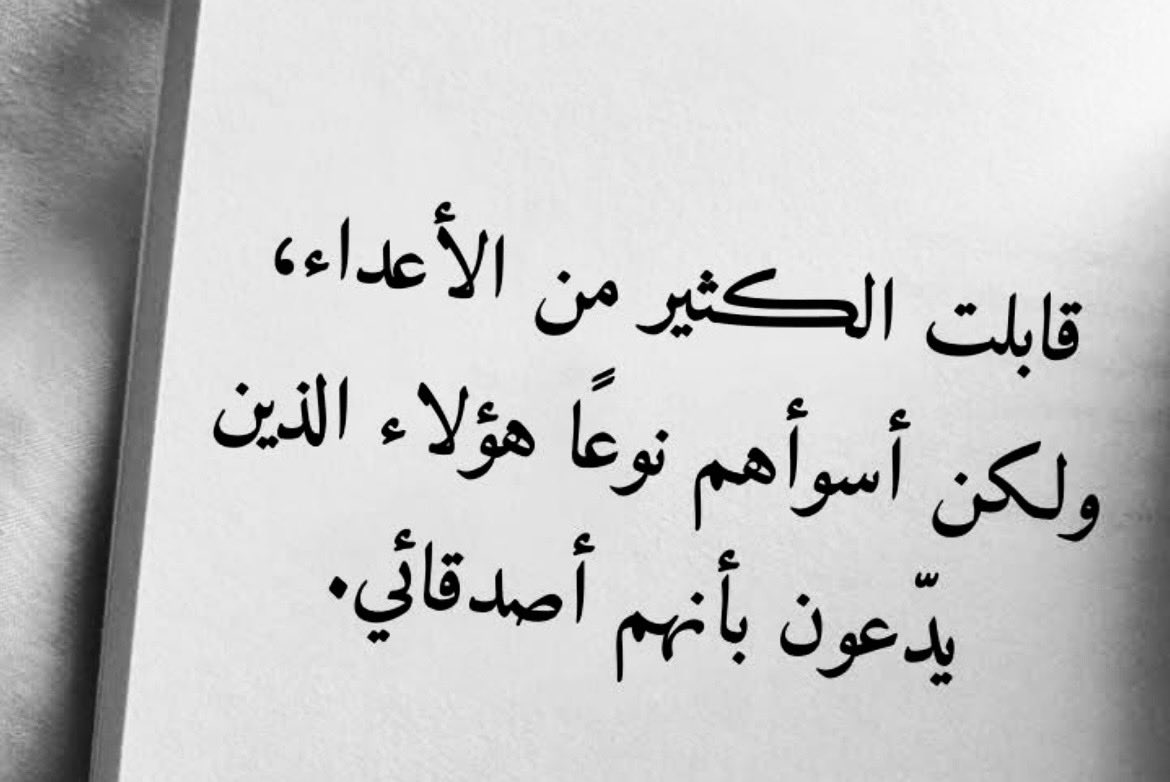 قابلت الكثير من الأعداء،
ولكن أسوأهم نوعًا هؤلاء الذين
يدّعون بأنهم أصدقائي.